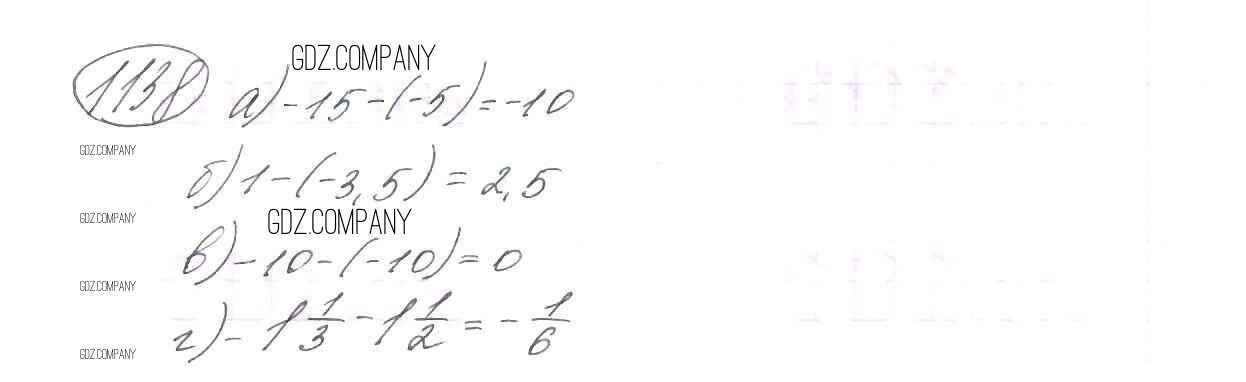 GDZ.COMPANY
1138 а) -15-(-5)=-10
GDZ.COMPANY
б) 1-(-3,5)=2,5
GDZ.COMPANY
GDZ.COMPANY
в) -10-(-10)=0
GDZ.COMPANY
г) -1 1/3 - 1 1/2 = - 1/6
GDZ.COMPANY